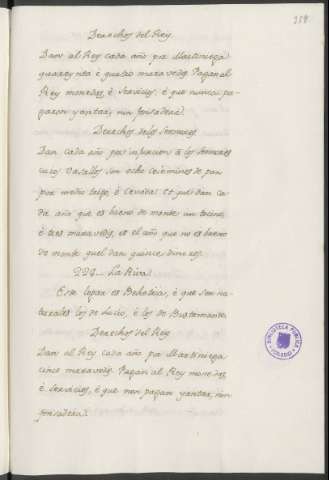 219.
Derechos del Rey.
Dan al Rey cada año por Martiniega
quarenta è quatro maravedis. Pagan al
Rey monedas, è servicios, è que nunca pa-
garon yantar, nin fonsadera.
Derechos de los Señores
Dan cada año por infurcion à los Señores
cuio vasallos son ocho celemines de pan
por medio trigo, è cevada: et quel dan ca-
da año que es bueno de monte un tocino,
è tres maravedis, et el año que no es bueno
de monte quel dan quince dineros.
La Riva.
Este logar es Behetria, è que son na-
turales los de Lucio, è los de Bustamante.
Derechos del Rey
Dan al Rey cada año por Martiniega
cinco maravedis. Pagan al Rey monedas,
è servicios, è que non pagan yantar, nin
fonsadera.
BIBLIOTECA PUBLICA
TOLEDO